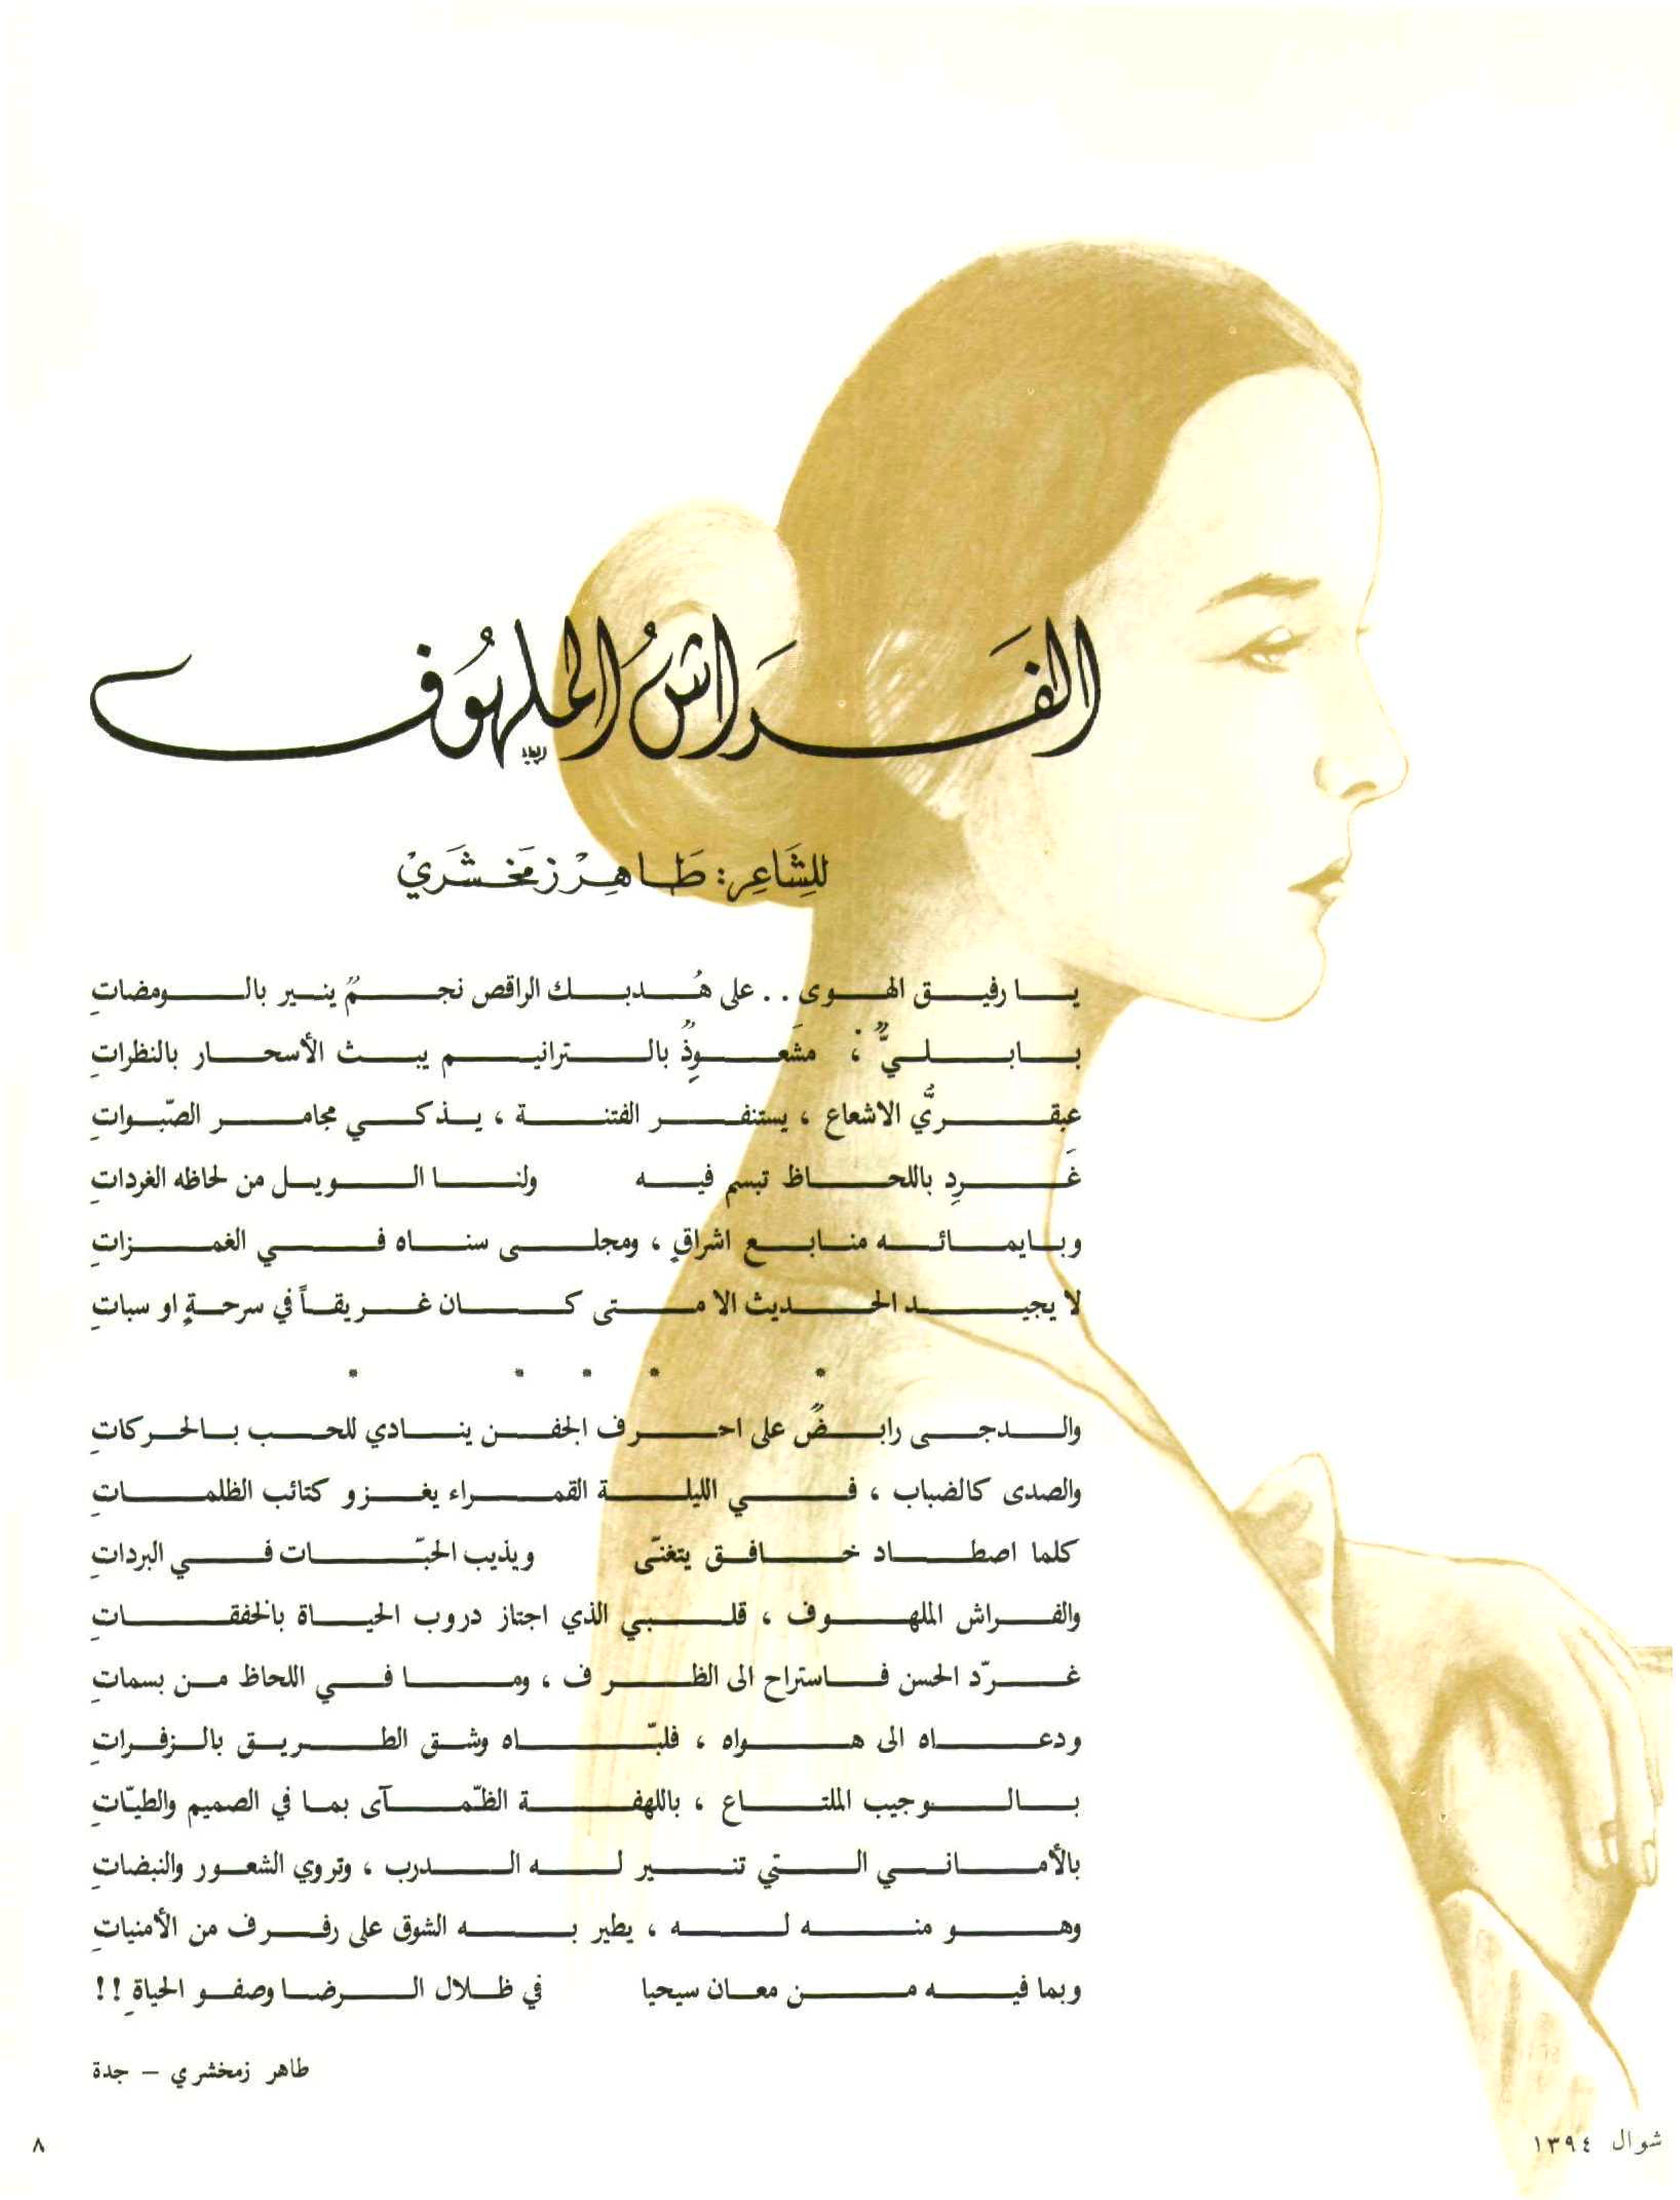 الفَراشُ الملهُوف
للِشَاعِر: طَاهِرْ زمَخشَريْ
يا رفيق الهوى .. على هُدبك الراقص نجمٌ ينير بالومضاتِ
بابليٌّ ، مشَعوِذٌ بالترانيم يبث الأسحار بالنظراتِ
عبقريُّ الاشعاع ، يستنفر الفتنة ، يذكي مجامر الصّبواتِ
غَرِدِ باللحاظ تبسم فيه ولنا الويل من لحاظه الغرداتِ
وبايمائه منابع اشراقٍ ، ومجلى سناه في الغمزاتِ
لا يجيد الحديث الا متى كان غريقاً في سرحةٍ او سباتِ
* * * * *
والدجى رابضٌ على احرف الجفن ينادي للحب بالحركاتِ
والصدى كالضباب ، في الليلة القمراء يغزو كتائب الظلماتِ
كلما اصطاد خافق يتغنّى ويذيب الحبّات في البرداتِ
والفراش الملهوف ، قلبي الذي اجتاز دروب الحياة بالخفقاتِ
غرّد الحسن فاستراح الى الظرف ، وما في اللحاظ من بسماتِ
ودعاه الى هواه ، فلبّاه وشق الطريق بالزفراتِ
بالوجيب الملتاع ، باللهفة الظّمآى بما في الصميم والطيّاتِ
بالأماني التي تنير له الدرب ، وتروي الشعور والنبضاتِ
وهو منه له ، يطير به الشوق على رفرف من الأمنياتِ
وبما فيه من معان سيحيا في ظلال الرضا وصفو الحياةِ !!
طاهر زمخشري – جدة
شوال ١٣٩٤
٨